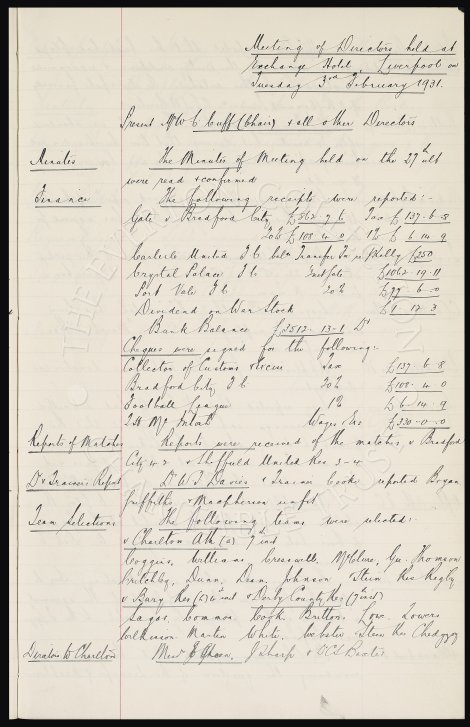 Meeting of Directors held at
Exchange Hotel, Liverpool on
Tuesday 3rd February 1931.
Present Mr W C Cuff (Chair) & all other Directors
Minutes The Minutes of Meeting held on the 27th ult
were read & confirmed
Finance The following receipts were reported:-
Gate v Bradford City £862 . 9 . 6 Tax £137 . 6 . 8
20% £108 . 4 . 0 1% £6 . 14 . 9
Carlisle United F.C. Transfer Kelly £250
Crystal Palace F.C. £1062 . 19 . 11
Port Vale F.C. 20% £77 . 6 . 0
Dividend on War Stock £1 . 17 . 3
Bank Balance £3512 . 13 . 1 Dr
Cheques were signed for the following:-
Collector of Customs & Excise Tax £137 . 6 . 8
Bradford City F.C. 20% £108 . 4 . 0
Football League 1% £6 . 14 . 9
Wages £330 . 0 . 0
Reports of Matches Reports were received of the matches v Bradford
City 4-2 & Sheffield United Res 3-4
Dr & Trainers Report Dr W. J. Davies & Trainer Cooke reported Bryan
Griffiths & Macpherson unfit
Team Selections The following teams were selected:-
v Charlton Ath (a) 7th inst
Coggins, Williams Cresswell, McClure, Gee Thomson
Critchley, Dunn, Dean, Johnson & Stein Res Rigby
v Bury Res & v Derby County Res (7th inst)
Sagar Common Cook Britton Low Towers
Wilkinson Martin White, Webster & Stein Res Chedgzoy
Directors to Charlton Messrs E Green, J Sharp & Baxter
THE EVERTON